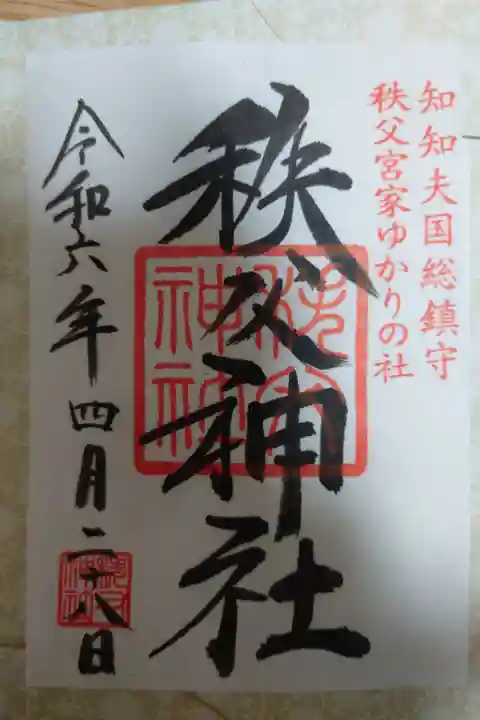 知知夫国総鎮守
秩父宮家ゆかりの社
秩父神社
秩父神社
令和六年四月二十八日